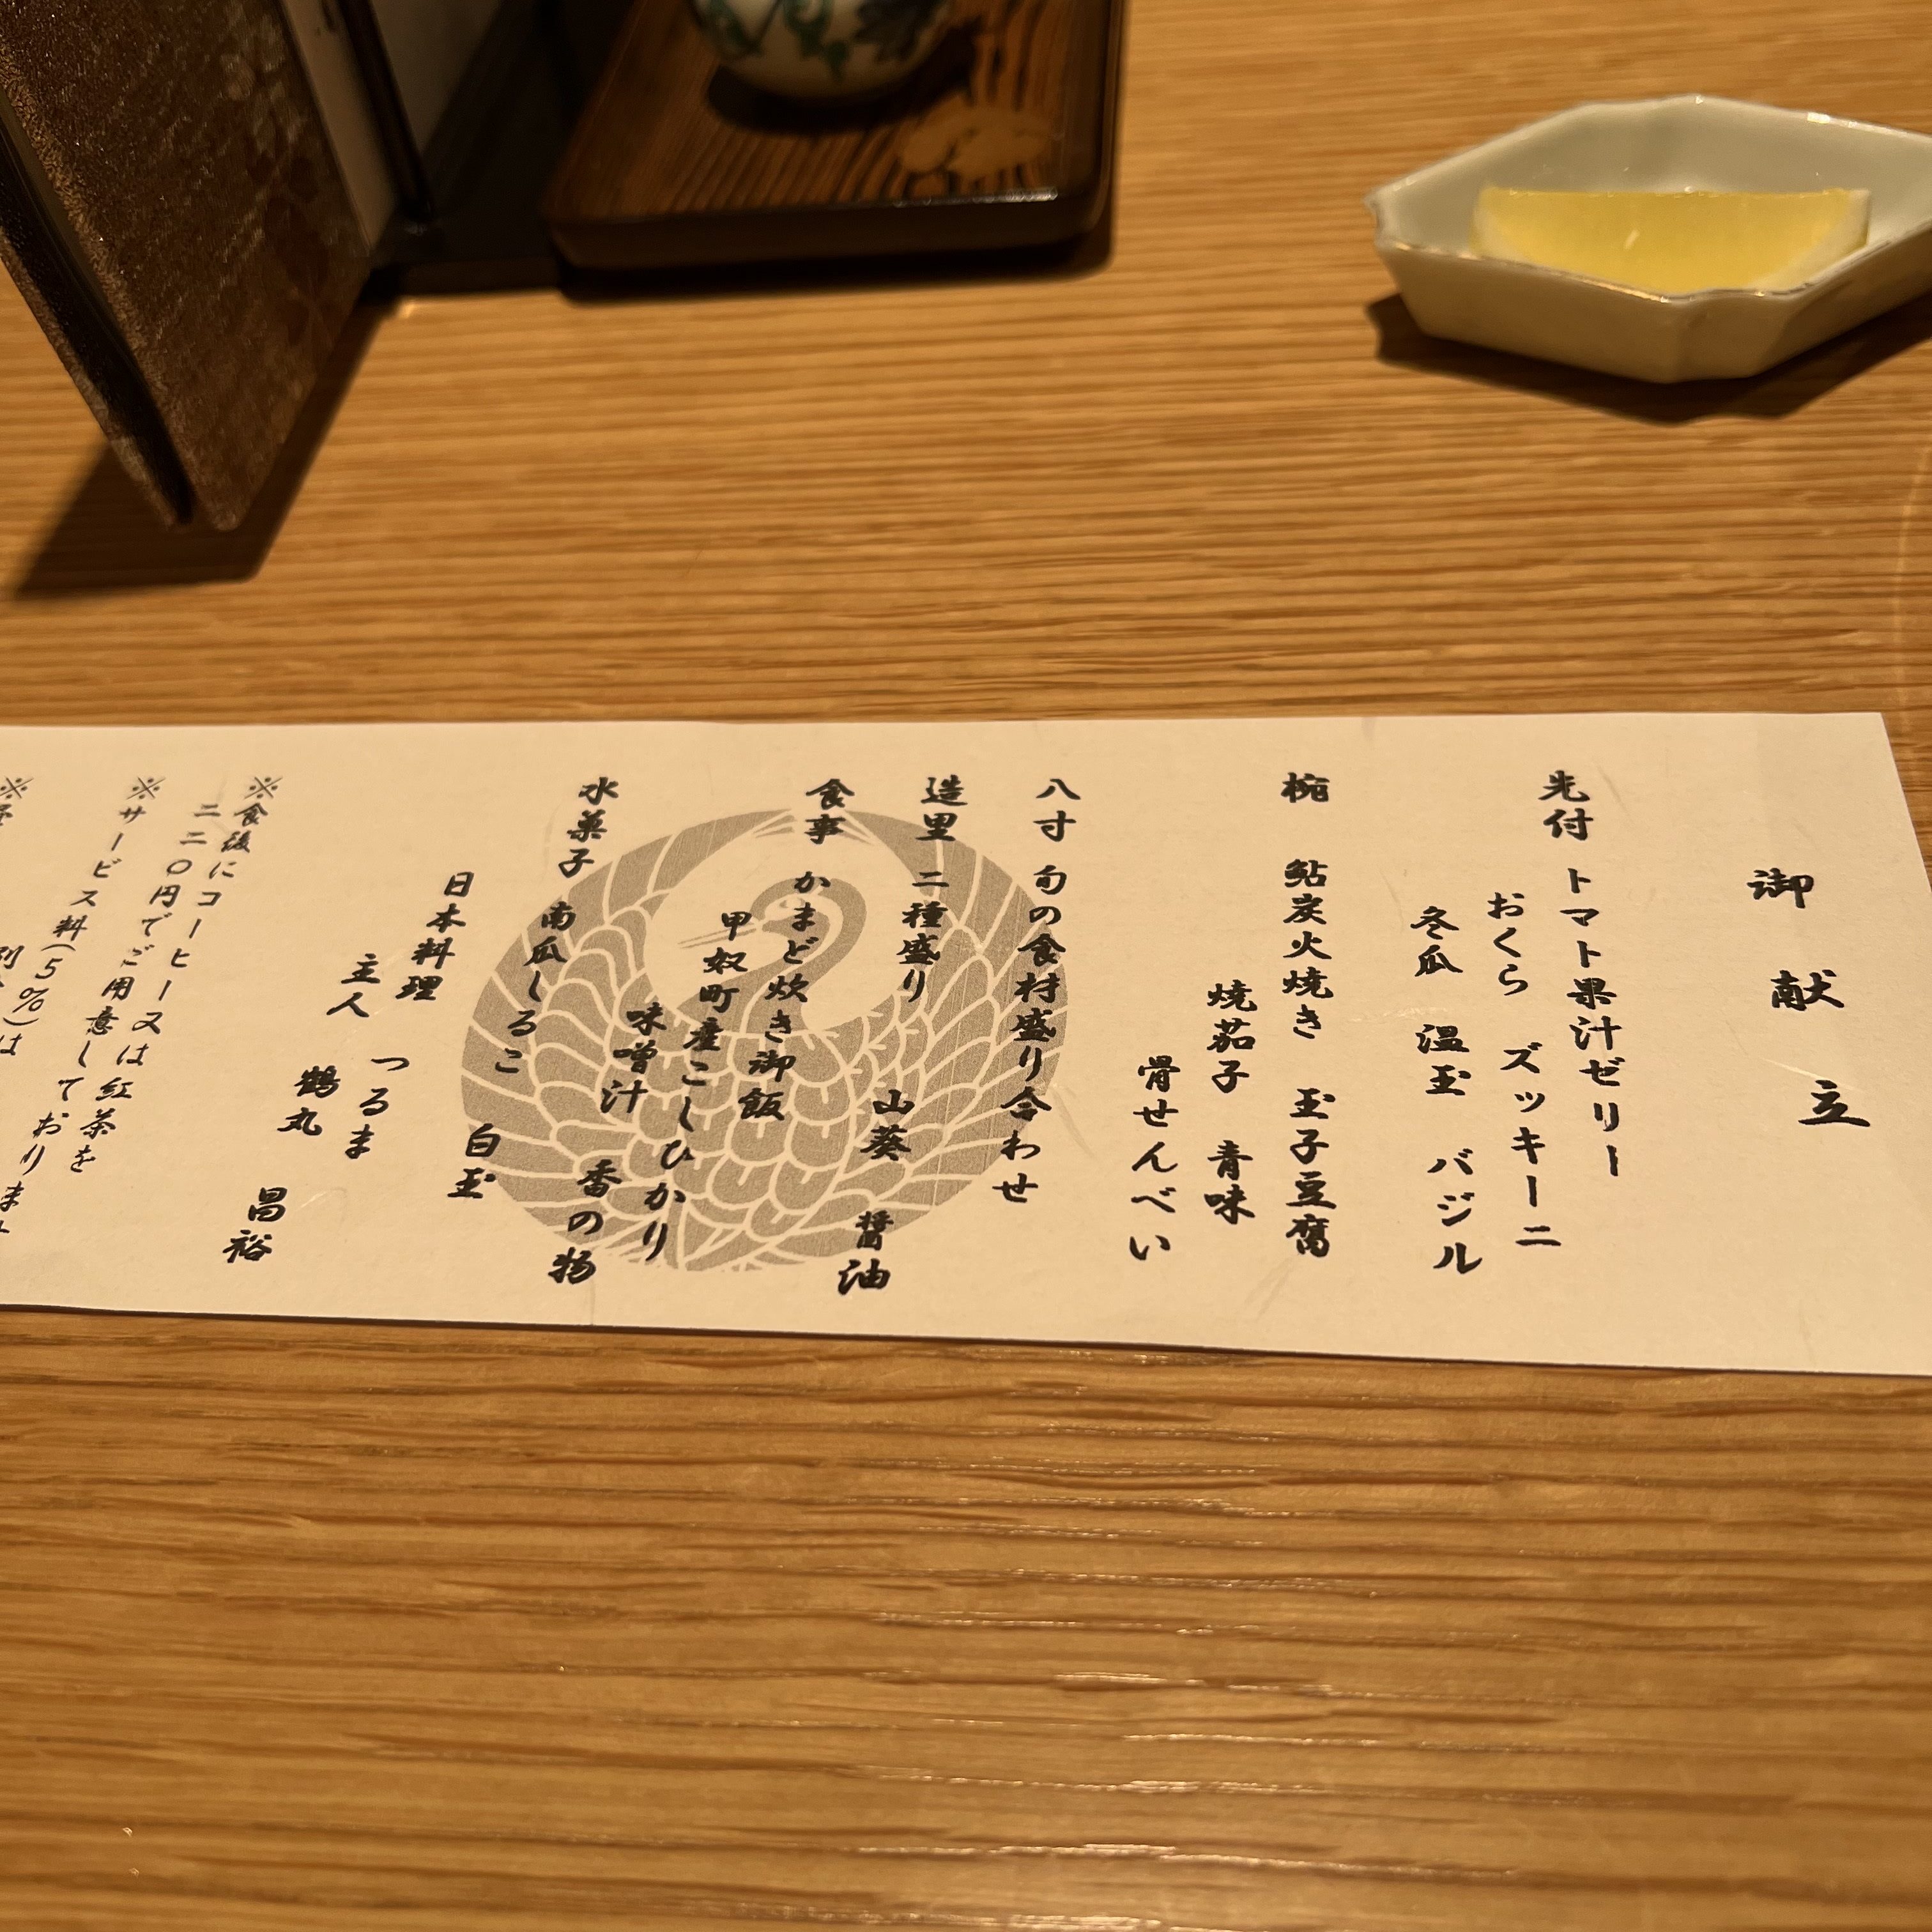 御献立
先付 トマト果汁ゼリー
おくら ズッキーニ
冬瓜 温玉 バジル
椀 鮎炭火焼き 玉子豆腐
焼茄子 青味
骨せんべい
八寸 旬の食材盛り合わせ
造里 二種盛り 山葵 醤油
食事 かまど炊き御飯
甲奴町産こしひかり
味噌汁 香の物
水菓子 南瓜しるこ 白玉
日本料理 つるま
主人 鶴丸 昌裕
※食後にコーヒー又は紅茶を
二二〇円でご用意しております
※サービス料(5%)は